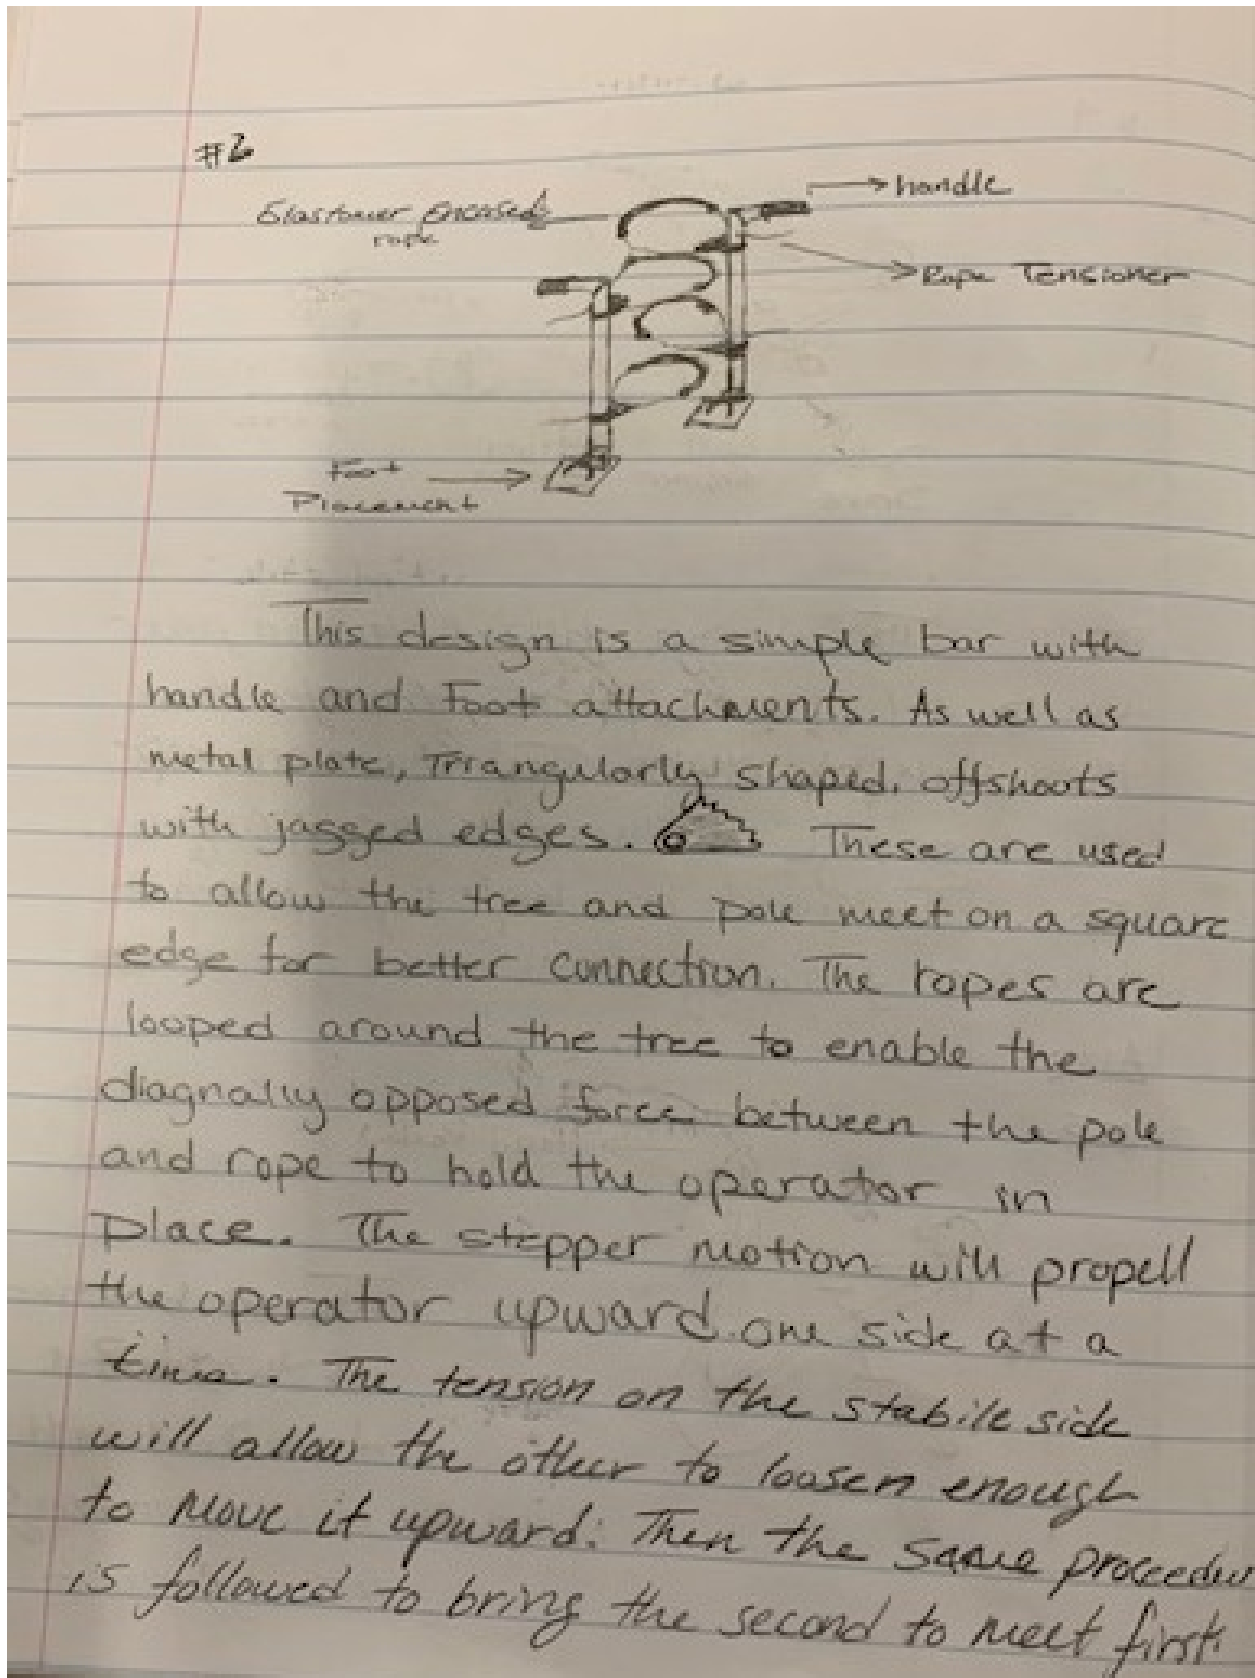 #2
handle
Elastomer Encased
rope
Rope Tensioner
Foot
Placement
This design is a simple bar with
handle and Foot attachments. As well as
metal plate, Triangularly shaped, offshoots
with jagged edges. These are used
to allow the tree and pole meet on a square
edge for better connection. The ropes are
looped around the tree to enable the
diagnally opposed force between the pole
and rope to hold the operator in
place. The stepper motion will propell
the operator upward one side at a
time. The tension on the stabile side
will allow the other to loosen enough
to move it upward. Then the same proceedur
is followed to bring the second to meet first.